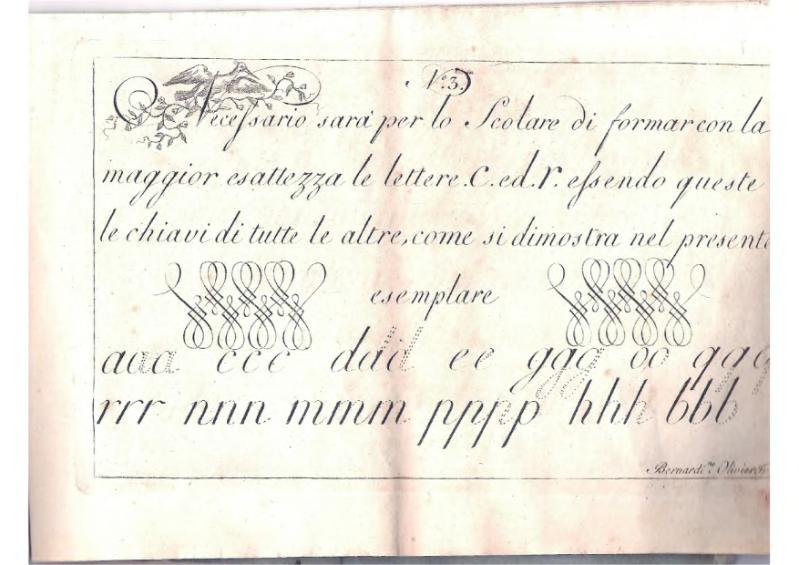 N.º 3.
Necessario sarà per lo Scolare di formar con la
maggior esattezza le lettere .C. ed .r. essendo queste
le chiavi di tutte le altre, come si dimostra nel presente
esemplare
aaa ccc ddd ee ggg oo qqq
rrr nnn mmm pppp hhh bbb
Bernardi.no Olivier